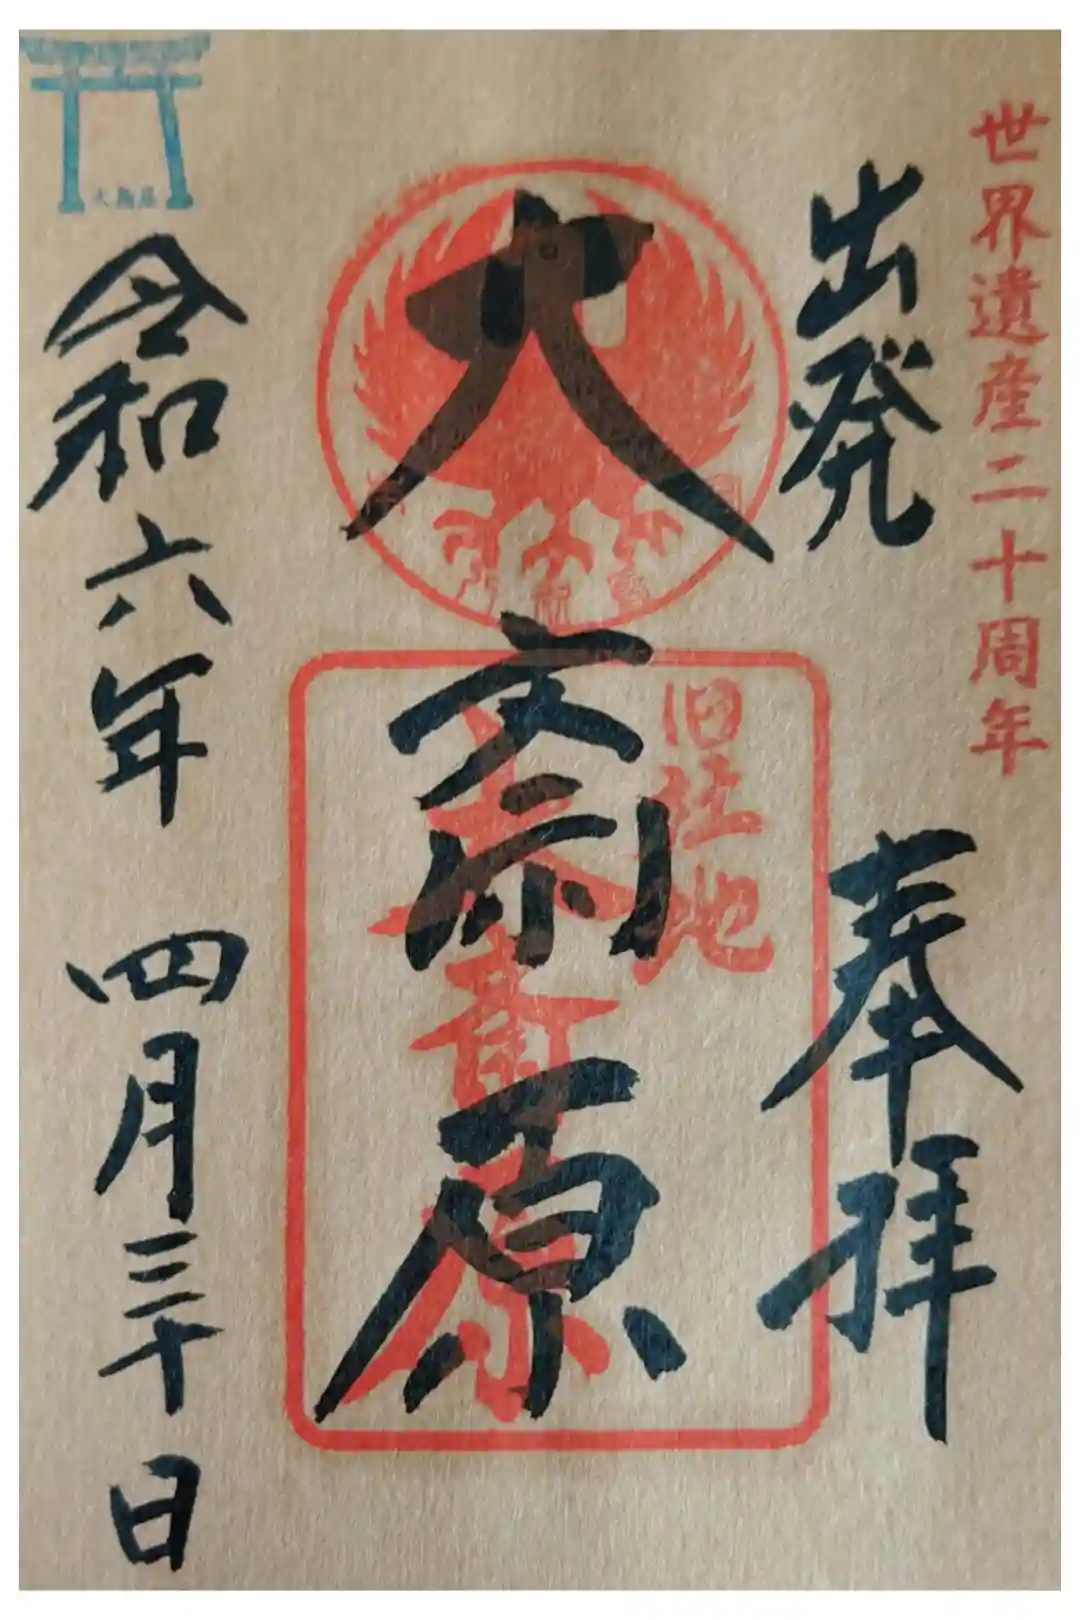 世界遺産二十周年
出発 奉拝
旧社地
大斎原
大斎原
大鳥居
令和六年 四月三十日